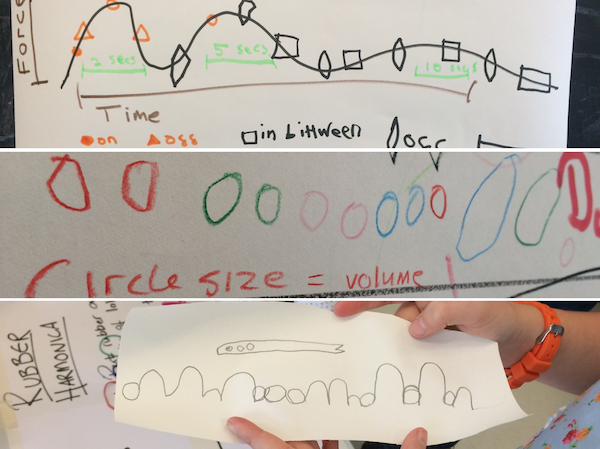 Force
2 secs
5 secs
10 secs
Time
on
off
in bittween
off
Circle size = volume
RUBBER
HARMONICA